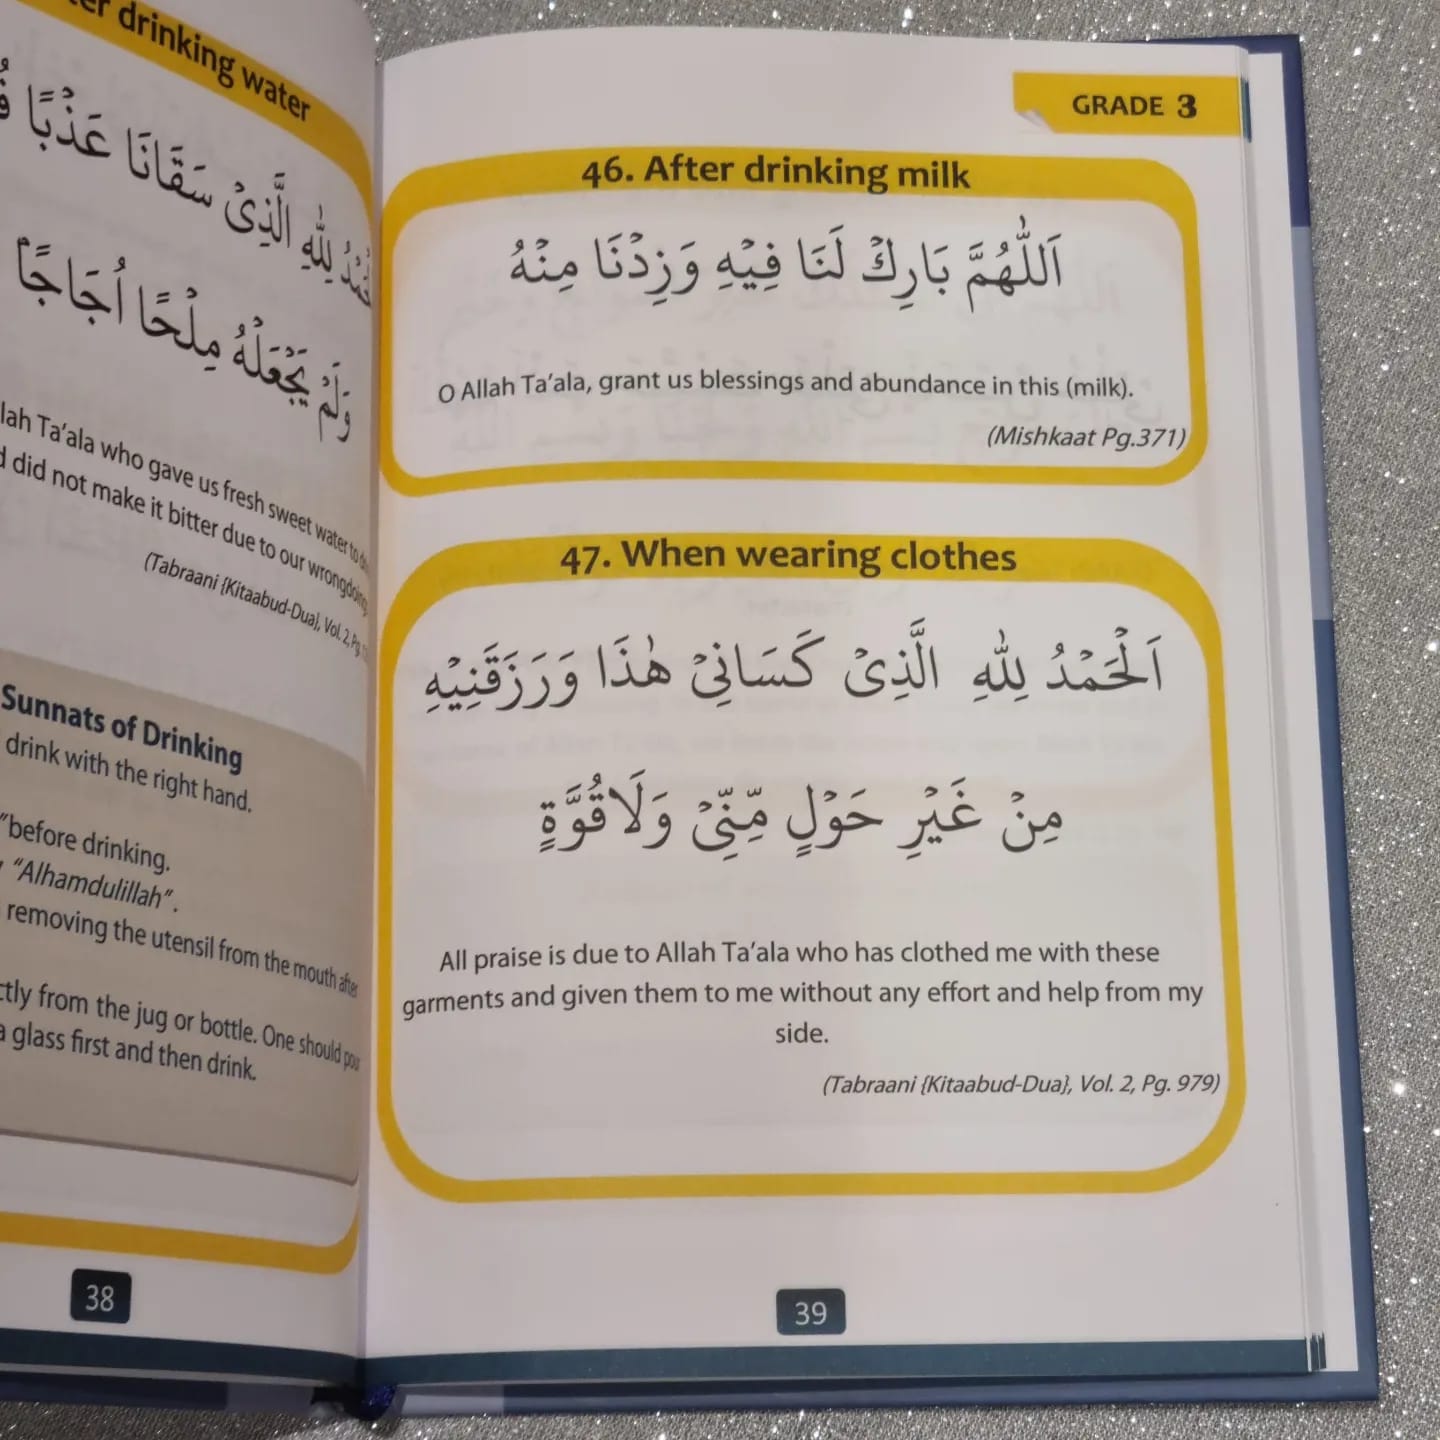 drinking water
لِلّٰهِ الَّذِىْ سَقَانَا عَذْبًا
وَلَمْ يَجْعَلْهُ مِلْحًا اُجَاجًا
Ta'ala who gave us fresh sweet water to
did not make it bitter due to our wrongdoing
(Tabraani {Kitaabud-Dua}, Vol. 2, Pg
Sunnats of Drinking
drink with the right hand.
" before drinking.
"Alhamdulillah".
removing the utensil from the mouth after
from the jug or bottle. One should
a glass first and then drink.
38
GRADE 3
46. After drinking milk
اَللّٰهُمَّ بَارِكْ لَنَا فِيْهِ وَزِدْنَا مِنْهُ
O Allah Ta'ala, grant us blessings and abundance in this (milk).
(Mishkaat Pg.371)
47. When wearing clothes
اَلْحَمْدُ لِلّٰهِ الَّذِىْ كَسَانِىْ هٰذَا وَرَزَقَنِيْهِ
مِنْ غَيْرِ حَوْلٍ مِّنِّىْ وَلَاقُوَّةٍ
All praise is due to Allah Ta'ala who has clothed me with these
garments and given them to me without any effort and help from my
side.
(Tabraani {Kitaabud-Dua}, Vol. 2, Pg. 979)
39